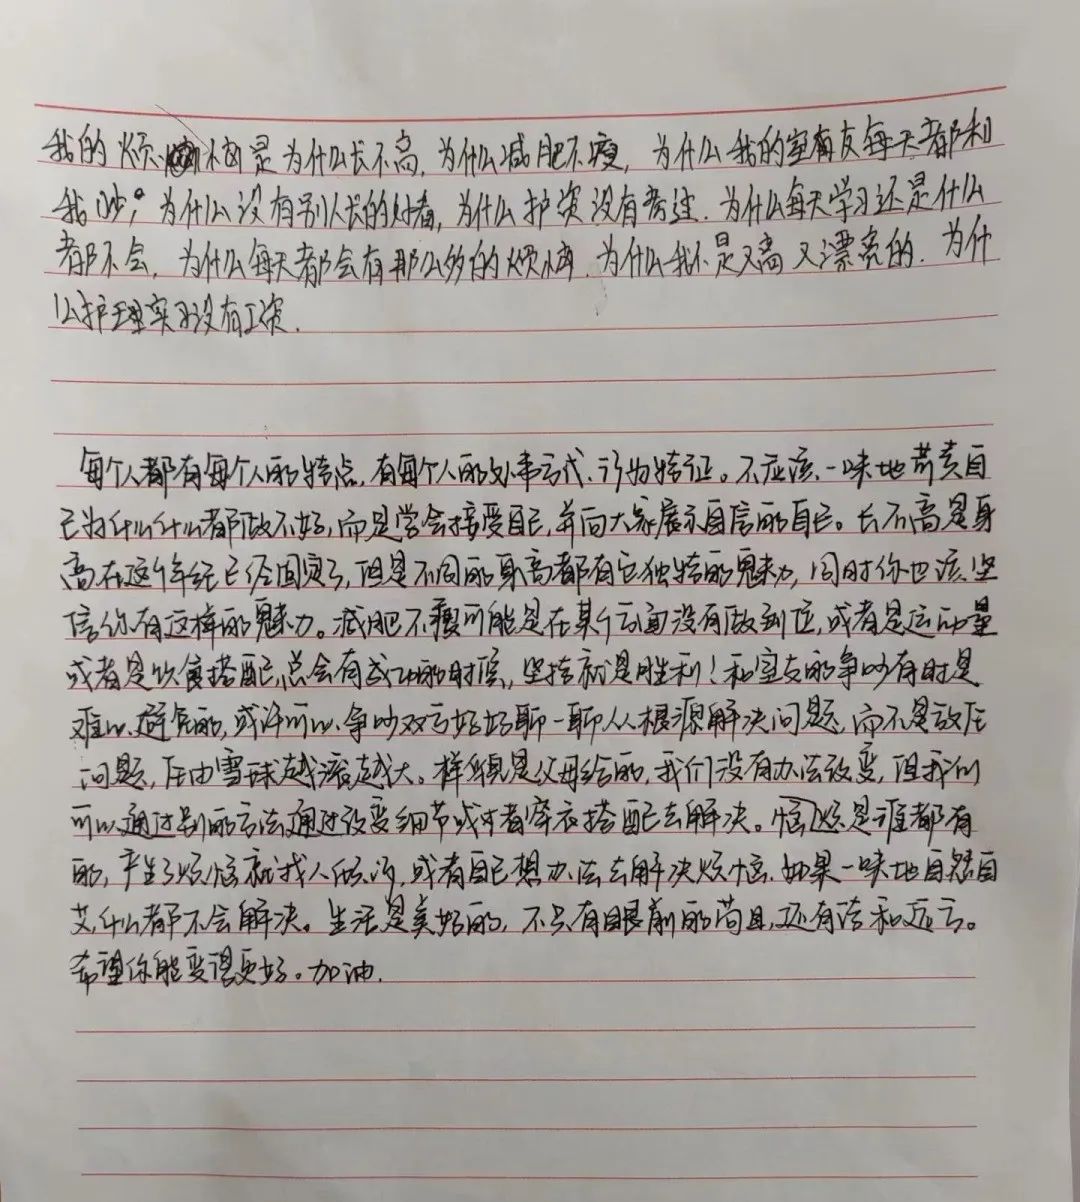 我的烦恼是为什么长不高,为什么减肥不瘦,为什么我的室友每天都和
我吵,为什么没有别人长的好看,为什么护资没有考过.为什么每天学习还是什么
都不会,为什么每天都会有那么多的烦恼.为什么我不是又高又漂亮的.为什
么护理实习没有工资.
每个人都有每个人的特点,有每个人的处事方式、行为特征。不应该一味地苛责自
己为什么什么都做不好,而是学会接受自己,并向大家展示自信的自己。长不高是身
高在这个年纪已经固定了,但是不同的身高都有它独特的魅力,同时你也该坚
信你有这样的魅力。减肥不瘦可能是在某个方面没有做到位,或者是运动量
或者是饮食搭配,总会有成功的时候,坚持就是胜利!和室友的争吵有时是
难以避免的,或许可以争吵双方好好聊一聊从根源解决问题,而不是放任
问题,任由雪球越滚越大。样貌是父母给的,我们没有办法改变,但我们
可以通过别的方法通过改变细节或者穿衣搭配去解决。恼烦是谁都有
的,产生了烦恼就找人倾诉,或者自己想办法去解决烦恼.如果一味地自怨自
艾,什么都不会解决。生活是美好的,不只有眼前的苟且,还有诗和远方。
希望你能变得更好。加油.